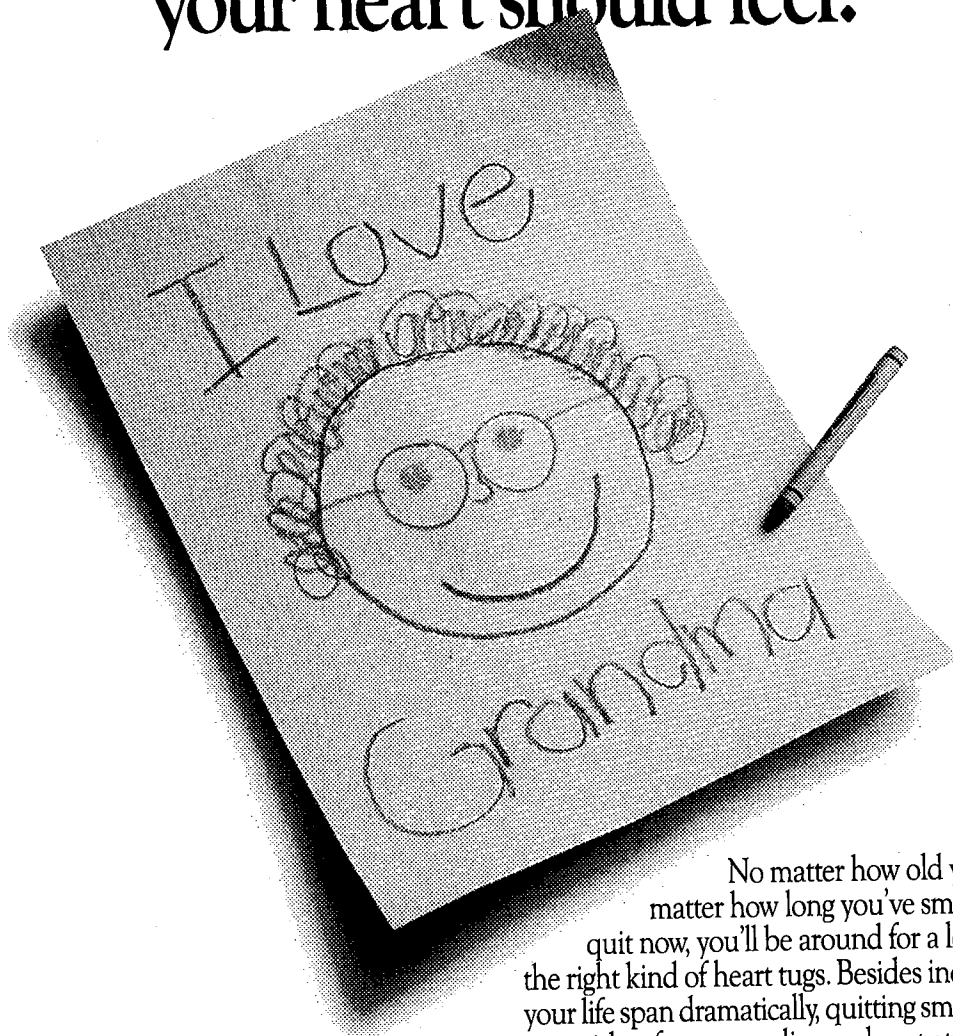 your heart should feel.
I Love
Grandma
No matter how old
matter how long you've
quit now, you'll be around for a
the right kind of heart tugs. Besides
your life span dramatically, quitting